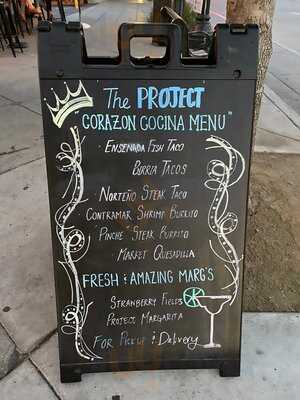 The PROJECT
"CORAZON COCINA MENU"
ENSENADA FISH TACO
BIRRIA TACOS
NORTEÑO STEAK TACO
CONTRAMAR SHRIMP BURRITO
"PINCHE" STEAK BURRITO
MARKET QUESADILLA
FRESH & AMAZING MARG'S
STRAWBERRY FIELDS
PROJECT MARGARITA
FOR PICKUP & Delivery